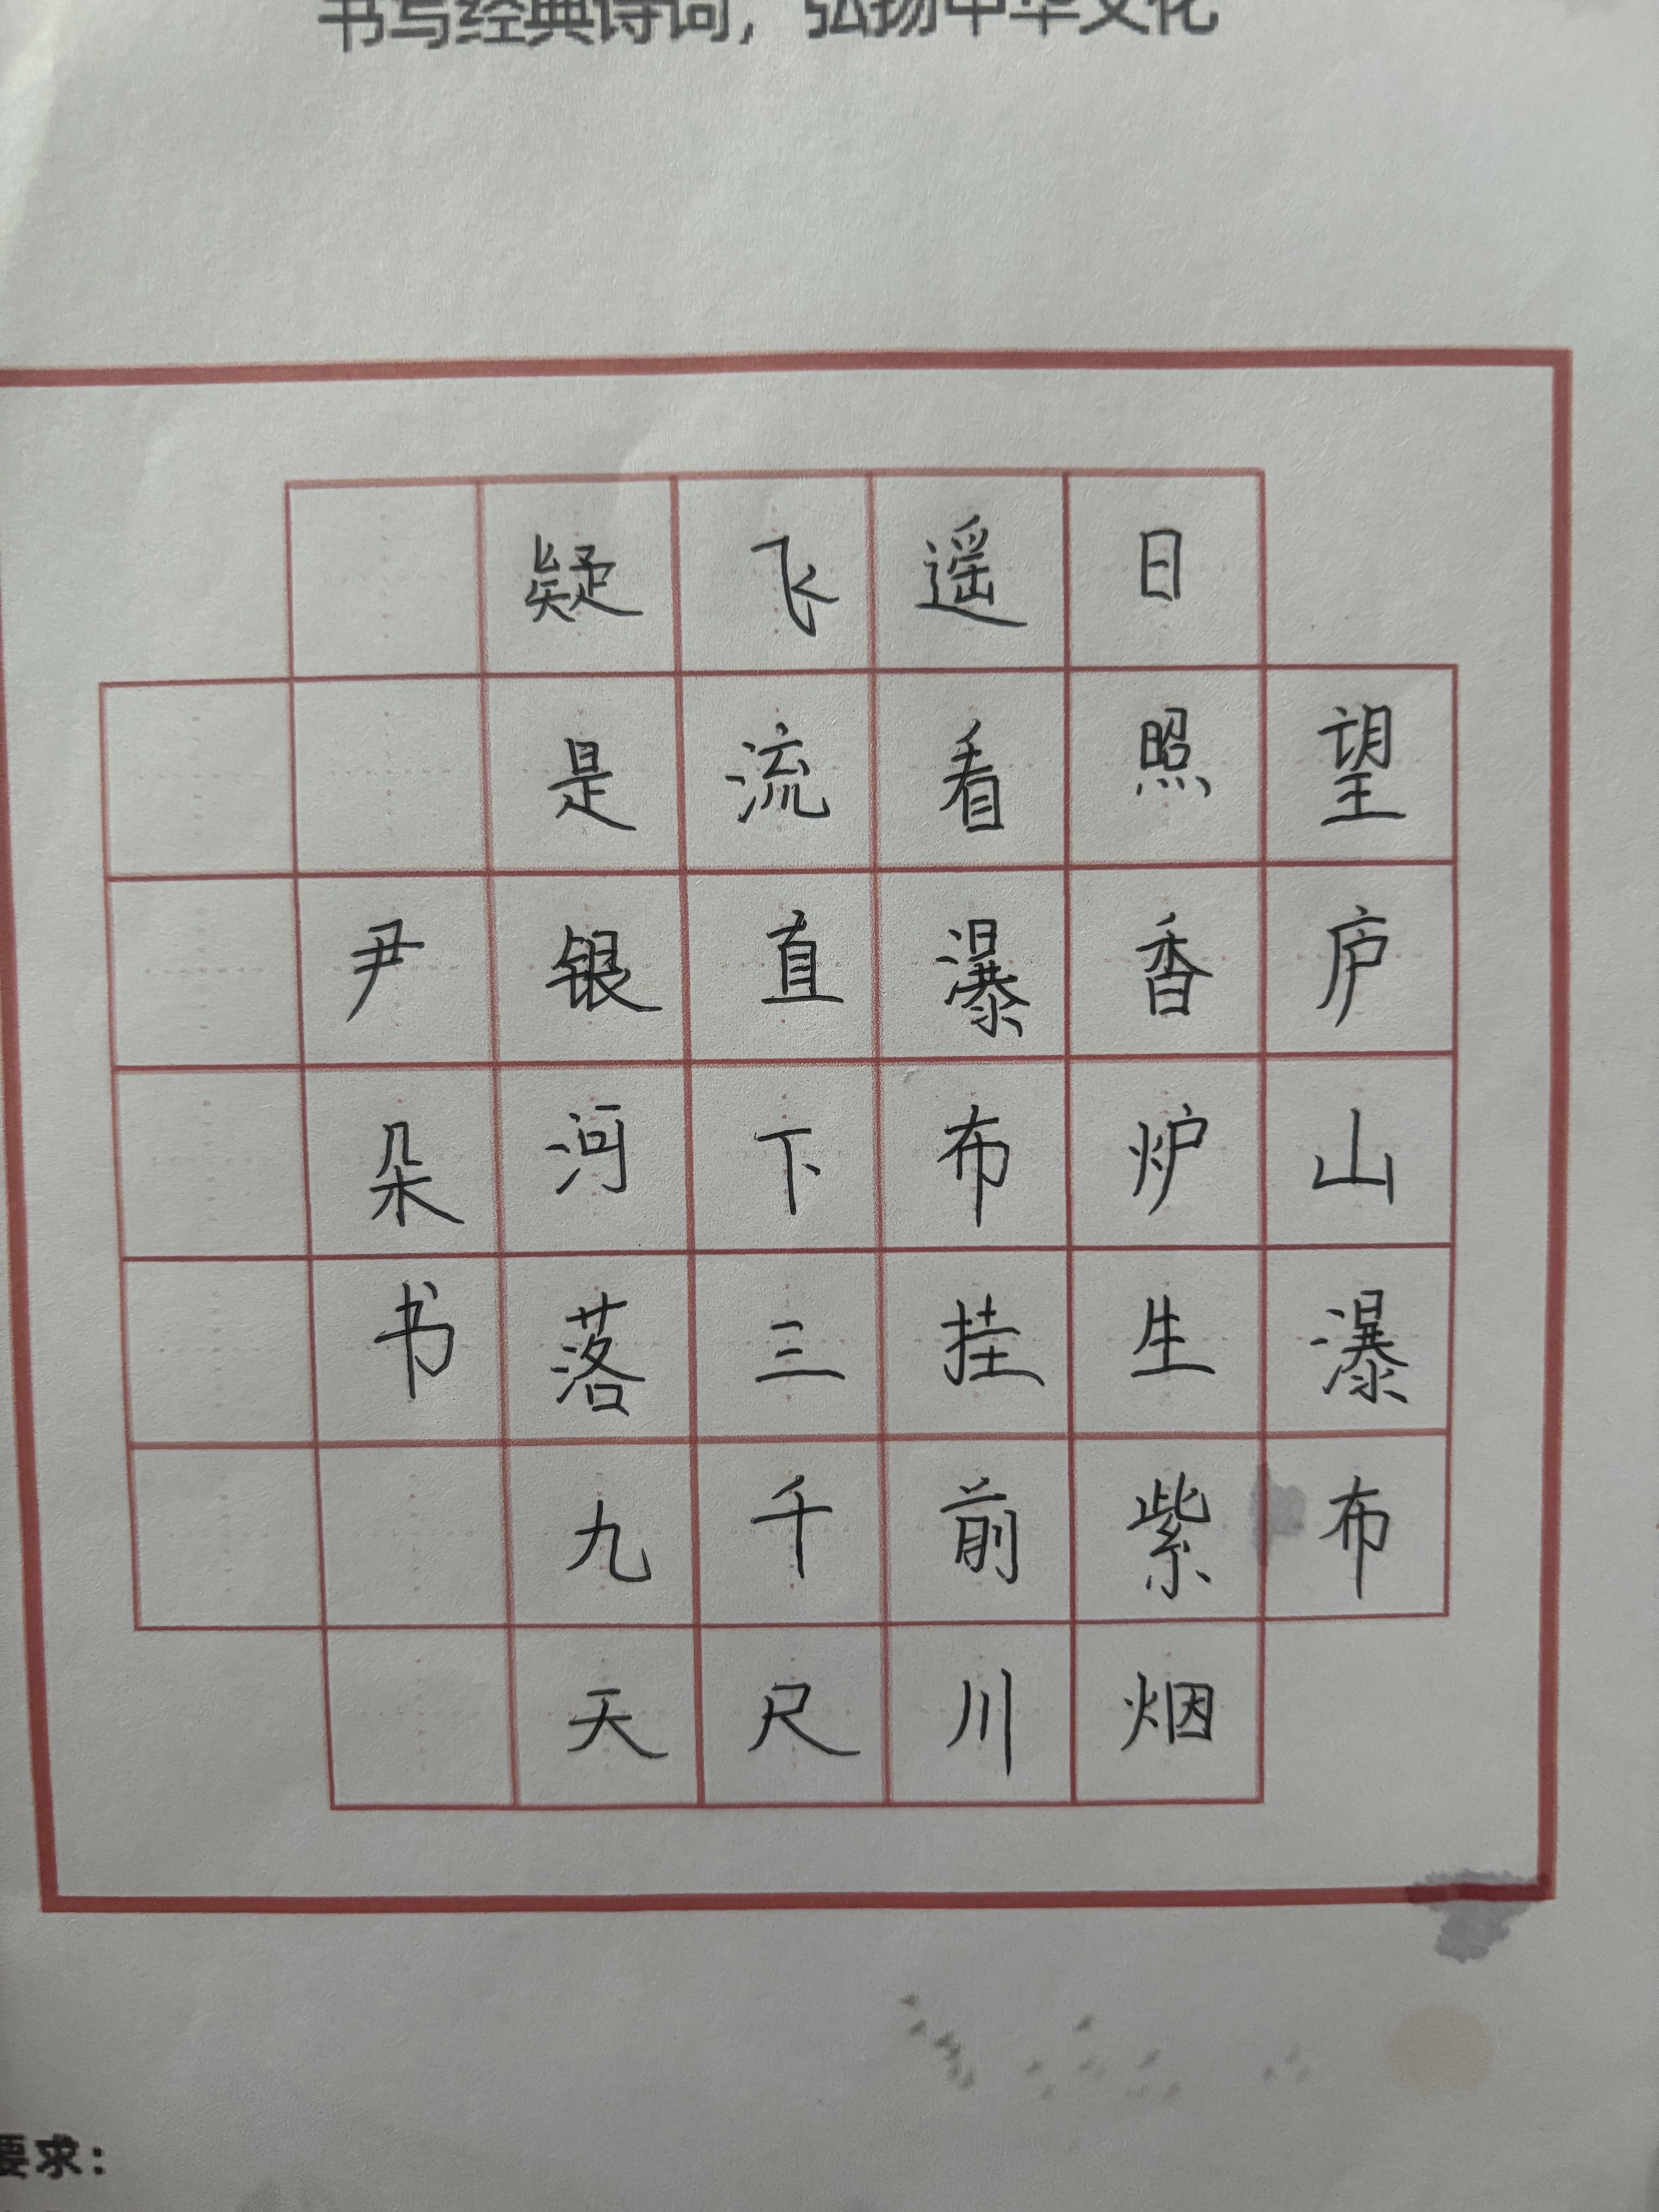 书写经典诗词，弘扬中华文化
望庐山瀑布
日照香炉生紫烟
遥看瀑布挂前川
飞流直下三千尺
疑是银河落九天
尹朵书
要求：